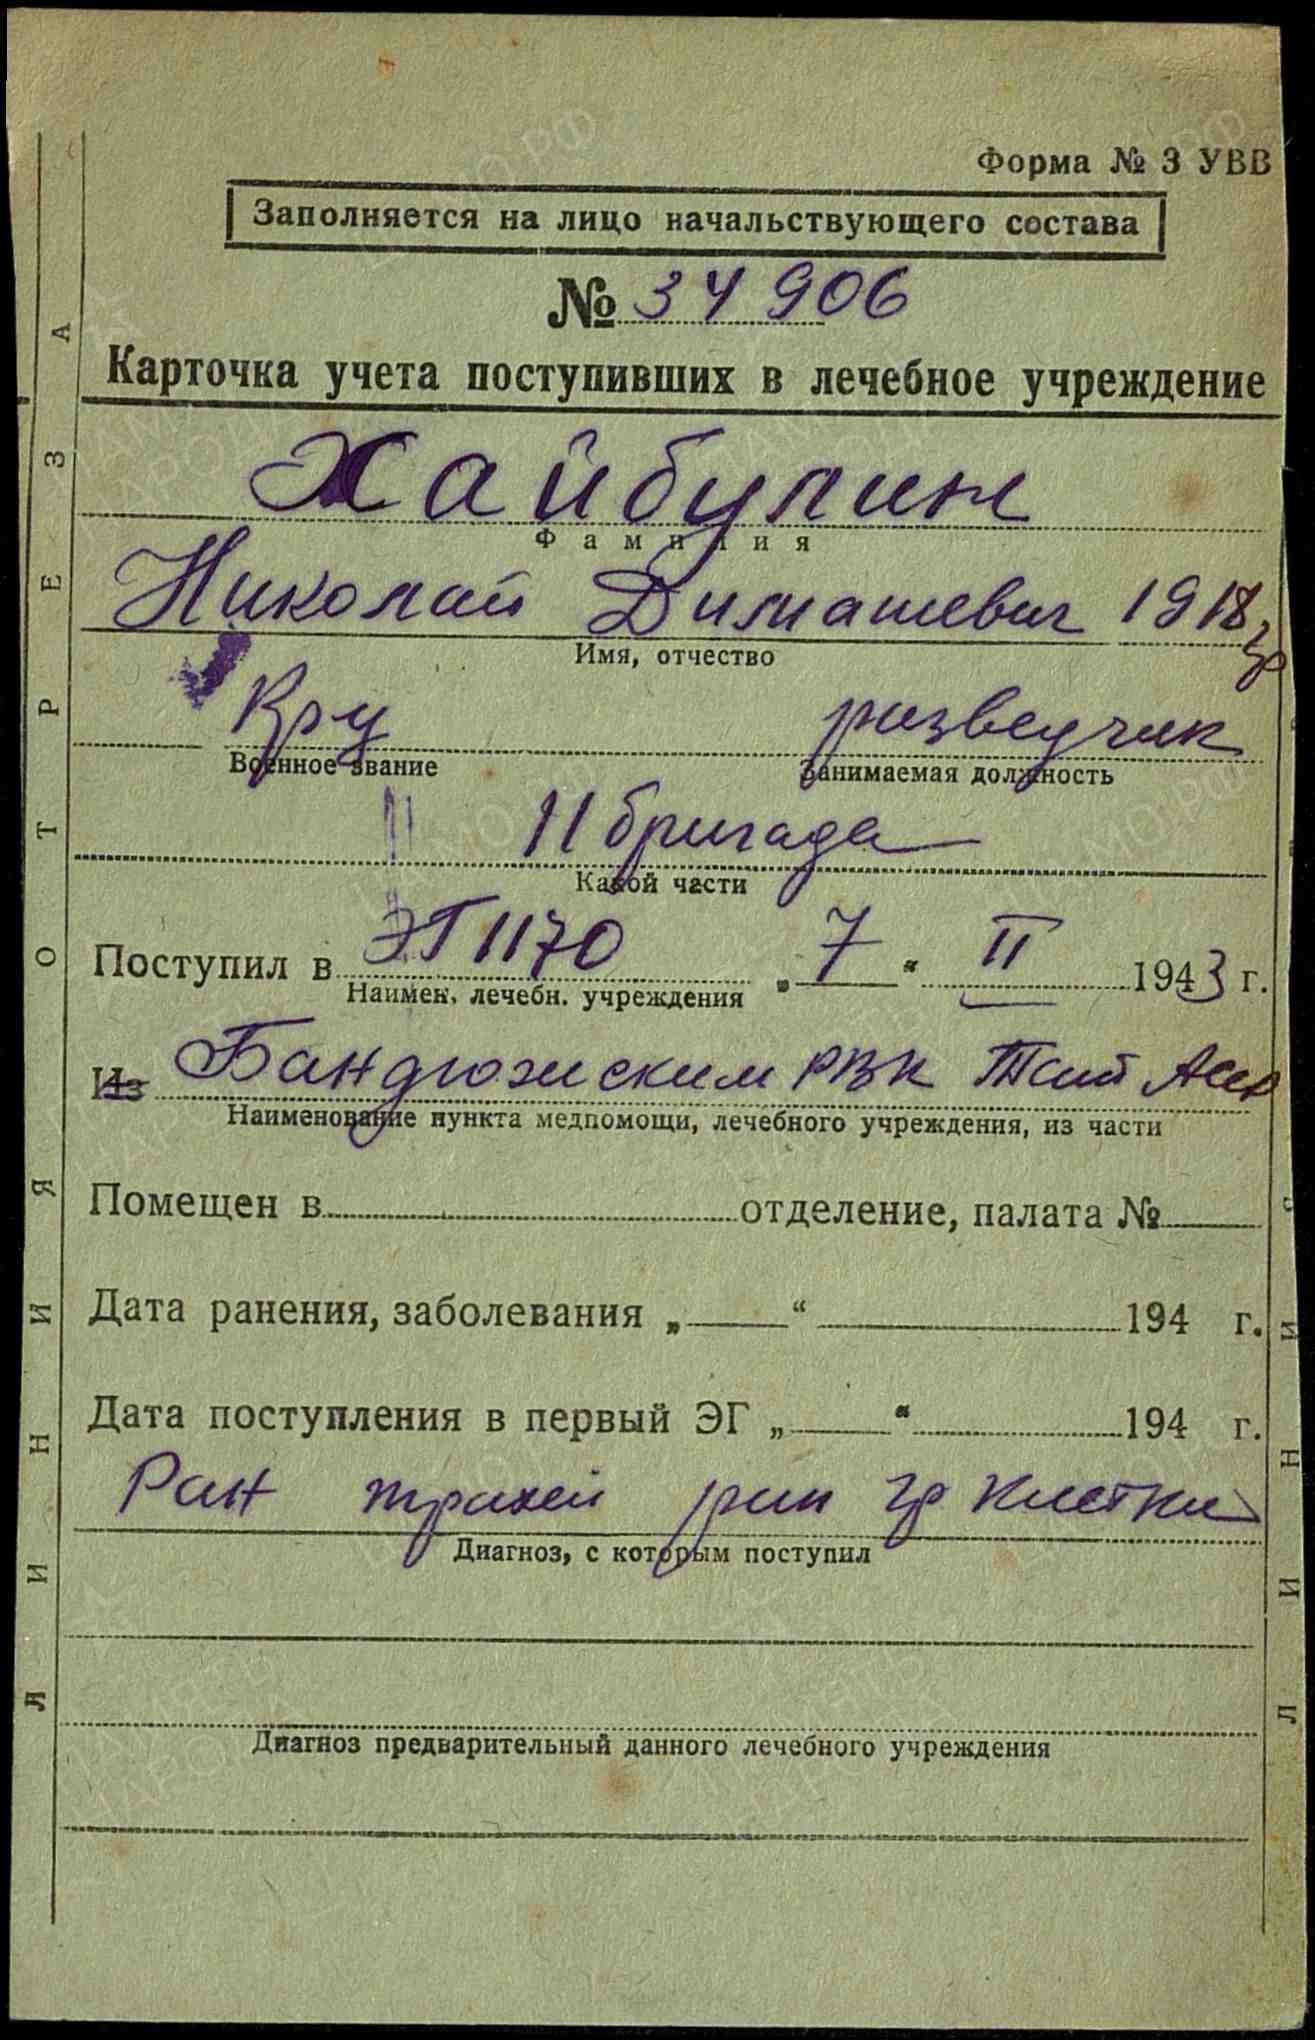 Форма № 3 УВВ
Заполняется на лицо начальствующего состава
№ 34906
Карточка учета поступивших в лечебное учреждение
Хайбулин
Фамилия
Николай Димашевич 1918 гр
Имя, отчество
Кру разведчик
Военное звание Занимаемая должность
11 бригада
Какой части
Поступил в ЭГ 1170 „7“ II 1943 г.
Наимен. лечебн. учреждения
Из Бандюжским РВК Тат Асср
Наименование пункта медпомощи, лечебного учреждения, из части
Помещен в отделение, палата №
Дата ранения, заболевания „ “ 194 г.
Дата поступления в первый ЭГ „ “ 194 г.
Ран трахеи ран гр клетки
Диагноз, с которым поступил
Диагноз предварительный данного лечебного учреждения
ЛИНИЯ ОТРЕЗА